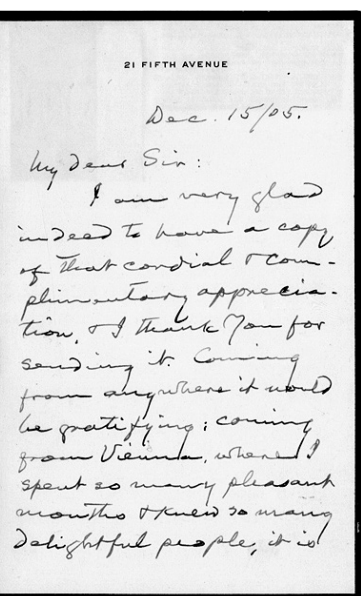 21 FIFTH AVENUE
Dec. 15/05.
My dear Sir:
I am very glad
indeed to have a copy
of that cordial & com-
plimentary apprecia-
tion, & I thank you for
sending it. Coming
from anywhere it would
be gratifying; coming
from Vienna, where I
spent so many pleasant
months & knew so many
delightful people, it is